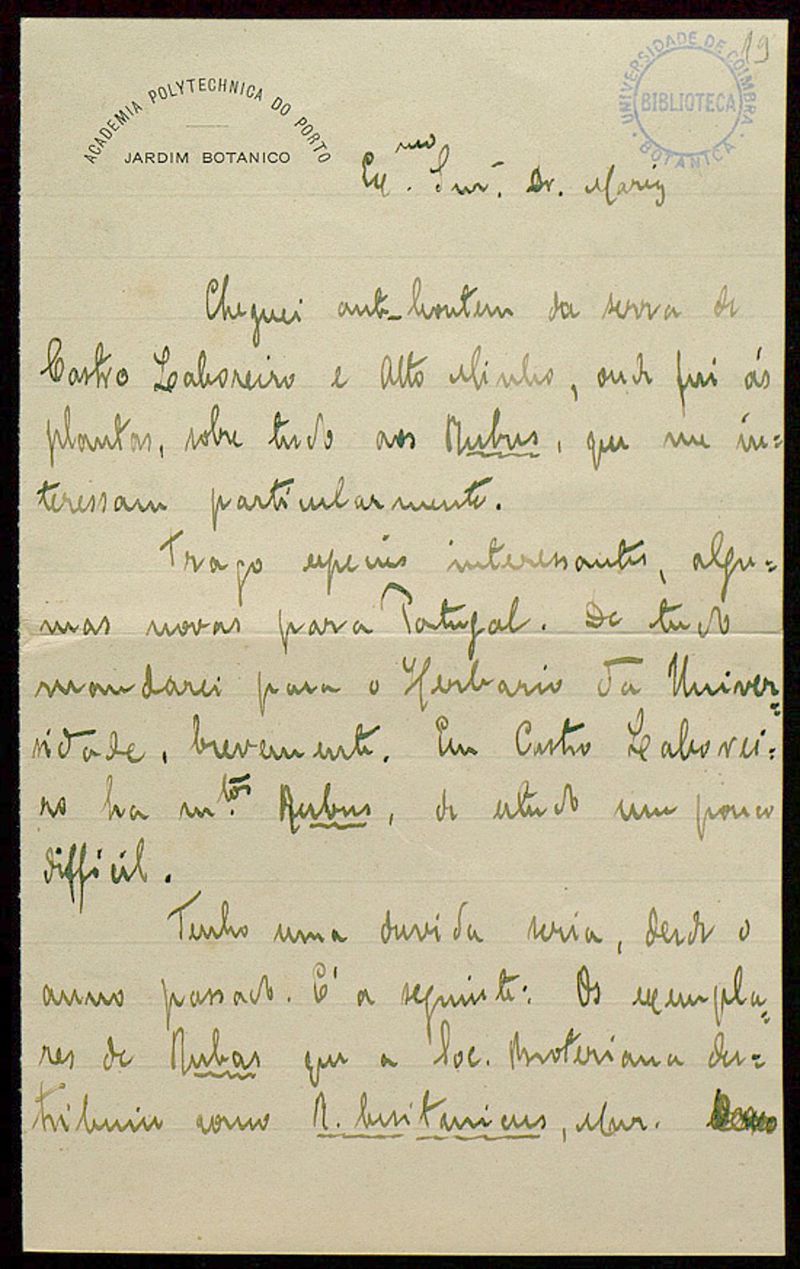 ACADEMIA POLYTECHNICA DO PORTO
JARDIM BOTANICO
UNIVERSIDADE DE COIMBRA
BIBLIOTECA
BOTANICA
19
Exmo. Snr. Dr. Mariz
Cheguei ant-hontem da serra de
Castro Laboreiro e Alto Minho, onde fui ás
plantas, sobre tudo aos Rubus, que me in-
teressam particularmente.
Trago especies interessantes, algu-
mas novas para Portugal. De tudo
mandarei para o Herbario da Univer-
sidade, brevemente. Em Castro Laborei-
ro ha mtos. Rubus, de estudo um pouco
difficil.
Tenho uma duvida seria, desde o
anno passado. E' a seguinte: Os exempla-
res de Rubus que a Soc. Broteriana des-
tribuiu como R. lusitanicus, Mur.